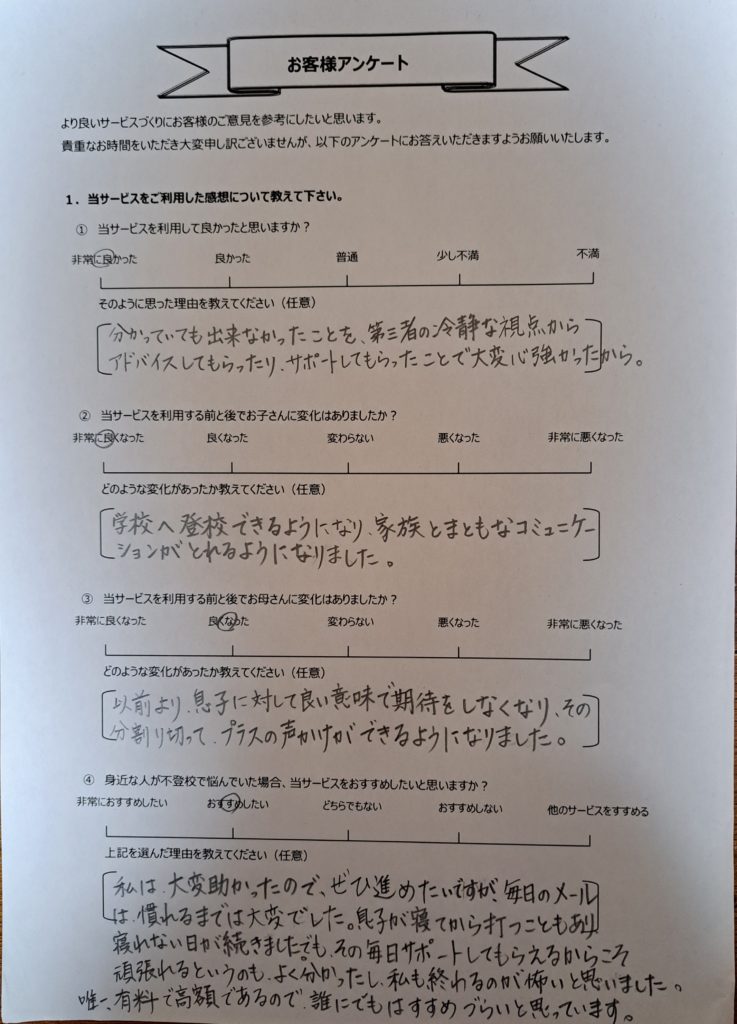 お客様アンケート
より良いサービスづくりにお客様のご意見を参考にしたいと思います。
貴重なお時間をいただき大変申し訳ございませんが、以下のアンケートにお答えいただきますようお願いいたします。
1．当サービスをご利用した感想について教えて下さい。
① 当サービスを利用して良かったと思いますか？
非常に良かった 良かった 普通 少し不満 不満
そのように思った理由を教えてください（任意）
分かっていても出来なかったことを、第三者の冷静な視点から
アドバイスしてもらったり、サポートしてもらったことで大変心強かったから。
② 当サービスを利用する前と後でお子さんに変化はありましたか？
非常に良くなった 良くなった 変わらない 悪くなった 非常に悪くなった
どのような変化があったか教えてください（任意）
学校へ登校できるようになり、家族とまともなコミュニケー
ションがとれるようになりました。
③ 当サービスを利用する前と後でお母さんに変化はありましたか？
非常に良くなった 良くなった 変わらない 悪くなった 非常に悪くなった
どのような変化があったか教えてください（任意）
以前より、息子に対して良い意味で期待をしなくなり、その
分割り切って、プラスの声かけができるようになりました。
④ 身近な人が不登校で悩んでいた場合、当サービスをおすすめしたいと思いますか？
非常におすすめしたい おすすめしたい どちらでもない おすすめしない 他のサービスをすすめる
上記を選んだ理由を教えてください（任意）
私は、大変助かったので、ぜひ進めたいですが、毎日のメール
は、慣れるまでは大変でした。息子が寝てから打つこともあり
寝れない日が続きました。でも、その毎日サポートしてもらえるからこそ
頑張れるというのも、よく分かったし、私も終わるのが怖いと思いました。
唯一、有料で高額であるので、誰にでもはすすめづらいと思っています。